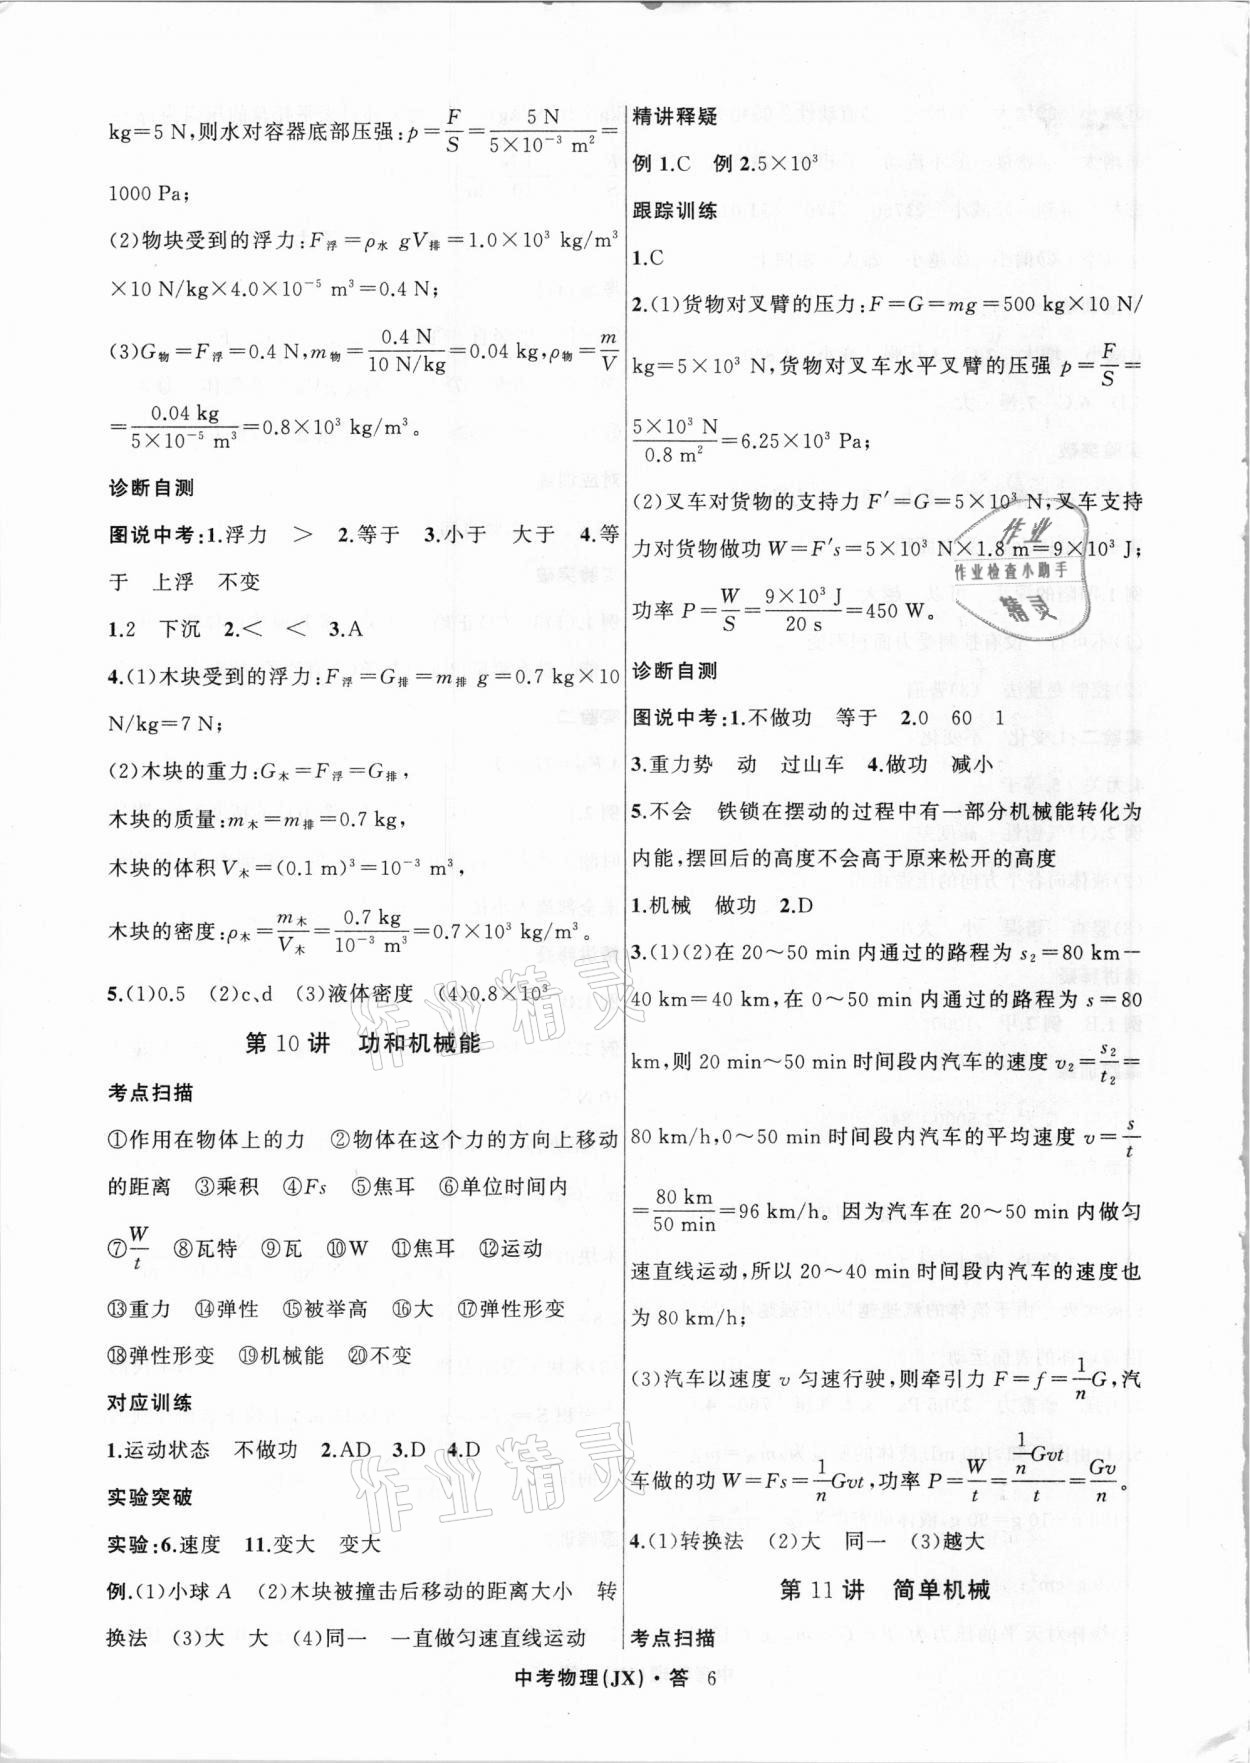 kg=5 N,则水对容器底部压强:p=F/S=5 N/5×10⁻³ m²=
1000 Pa;
(2)物块受到的浮力:F浮=ρ水 gV排=1.0×10³ kg/m³
×10 N/kg×4.0×10⁻⁵ m³=0.4 N;
(3)G物=F浮=0.4 N,m物=0.4 N/10 N/kg=0.04 kg,ρ物=m/V
=0.04 kg/5×10⁻⁵ m³=0.8×10³ kg/m³。
诊断自测
图说中考:1.浮力 > 2.等于 3.小于 大于 4.等
于 上浮 不变
1.2 下沉 2.< < 3.A
4.(1)木块受到的浮力:F浮=G排=m排 g=0.7 kg×10
N/kg=7 N;
(2)木块的重力:G木=F浮=G排,
木块的质量:m木=m排=0.7 kg,
木块的体积V木=(0.1 m)³=10⁻³ m³,
木块的密度:ρ木=m木/V木=0.7 kg/10⁻³ m³=0.7×10³ kg/m³。
5.(1)0.5 (2)c、d (3)液体密度 (4)0.8×10³
第 10 讲 功和机械能
考点扫描
①作用在物体上的力 ②物体在这个力的方向上移动
的距离 ③乘积 ④Fs ⑤焦耳 ⑥单位时间内
⑦W/t ⑧瓦特 ⑨瓦 ⑩W ⑪焦耳 ⑫运动
⑬重力 ⑭弹性 ⑮被举高 ⑯大 ⑰弹性形变
⑱弹性形变 ⑲机械能 ⑳不变
对应训练
1.运动状态 不做功 2.AD 3.D 4.D
实验突破
实验:6.速度 11.变大 变大
例.(1)小球A (2)木块被撞击后移动的距离大小 转
换法 (3)大 大 (4)同一 一直做匀速直线运动
精讲释疑
例 1.C 例 2.5×10³
跟踪训练
1.C
2.(1)货物对叉臂的压力:F=G=mg=500 kg×10 N/
kg=5×10³ N,货物对叉车水平叉臂的压强 p=F/S=
5×10³ N/0.8 m²=6.25×10³ Pa;
(2)叉车对货物的支持力 F′=G=5×10³ N,叉车支持
力对货物做功 W=F′s=5×10³ N×1.8 m=9×10³ J;
功率 P=W/S=9×10³ J/20 s=450 W。
诊断自测
图说中考:1.不做功 等于 2.0 60 1
3.重力势 动 过山车 4.做功 减小
5.不会 铁锁在摆动的过程中有一部分机械能转化为
内能,摆回后的高度不会高于原来松开的高度
1.机械 做功 2.D
3.(1)(2)在 20～50 min 内通过的路程为 s₂=80 km－
40 km=40 km,在 0～50 min 内通过的路程为 s=80
km,则 20 min～50 min 时间段内汽车的速度 v₂=s₂/t₂=
80 km/h,0～50 min 时间段内汽车的平均速度 v=s/t
=80 km/50 min=96 km/h。因为汽车在 20～50 min 内做匀
速直线运动,所以 20～40 min 时间段内汽车的速度也
为 80 km/h;
(3)汽车以速度 v 匀速行驶,则牵引力 F=f=1/n G,汽
车做的功 W=Fs=1/n Gvt,功率 P=W/t=1/n Gvt/t=Gv/n。
4.(1)转换法 (2)大 同一 (3)越大
第 11 讲 简单机械
考点扫描
中考物理(JX)·答 6
作业
作业检查小助手
精灵
作业精灵
作业精灵